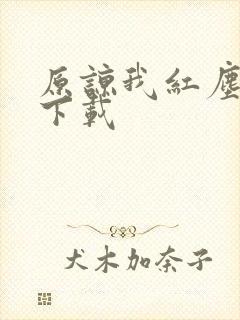 原諒我紅塵
下載
犬木加奈子